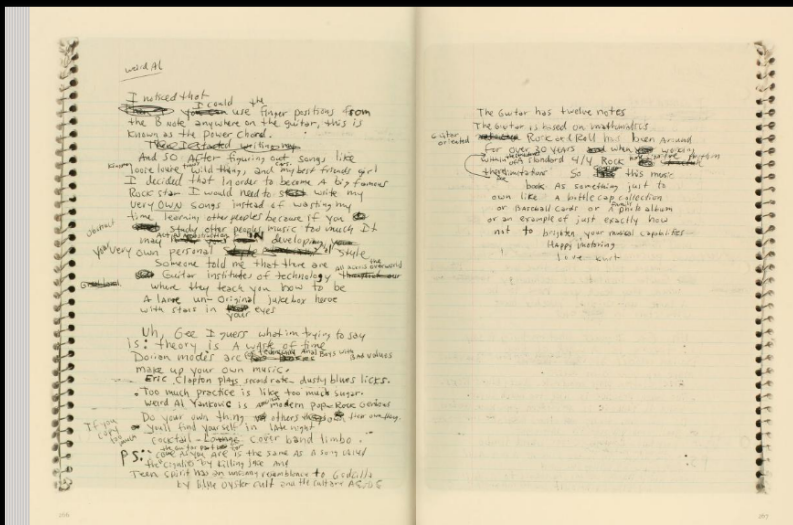 weird Al
I noticed that
I could the
use finger positions from
the B note anywhere on the guitar, this is
known as the power chord.
And so After figuring out songs like
loose louie, wild thing, and my best friends girl
I decided that In order to become A big famous
Rock star I would need to write my
very OWN songs instead of wasting my
time learning other peoples because if you
study other peoples music too much It
may IN developing
your very own personal style
Someone told me that there are
Guitar institutes of technology all across the world
where they teach you how to be
A lame un-Original jukebox heroe
with stars in your eyes
Uh, Gee I guess what im trying to say
is: theory is A waste of time
Dorian modes are for technical Anal Boys with Bad values
make up your own music.
Eric Clapton plays second rate dusty blues licks.
Too much practice is like too much sugar.
Weird Al Yankovic is modern pop Rock Genious
Do your own thing others their own thing.
If you copy too much
youll find yourself in late night
cocktail-Lounge cover band limbo.
PS: Come As you are is the same As A song called
the eighties by killing joke And
Teen spirit has an uncanny resemblance to Godzilla
by blue oyster cult and the cult are AC/DC
The Guitar has twelve notes
The Guitar is based on mathmatics
Guitar oriented Rock and Roll has been Around
for over 30 years and when you working
within A standard 4/4 Rock
So this music
book As something just to
own like: A bottle cap collection
or Baseball Cards or A photo album
or an example of just exactly how
not to brighten your musical capabilities
Happy motoring
love Kurt